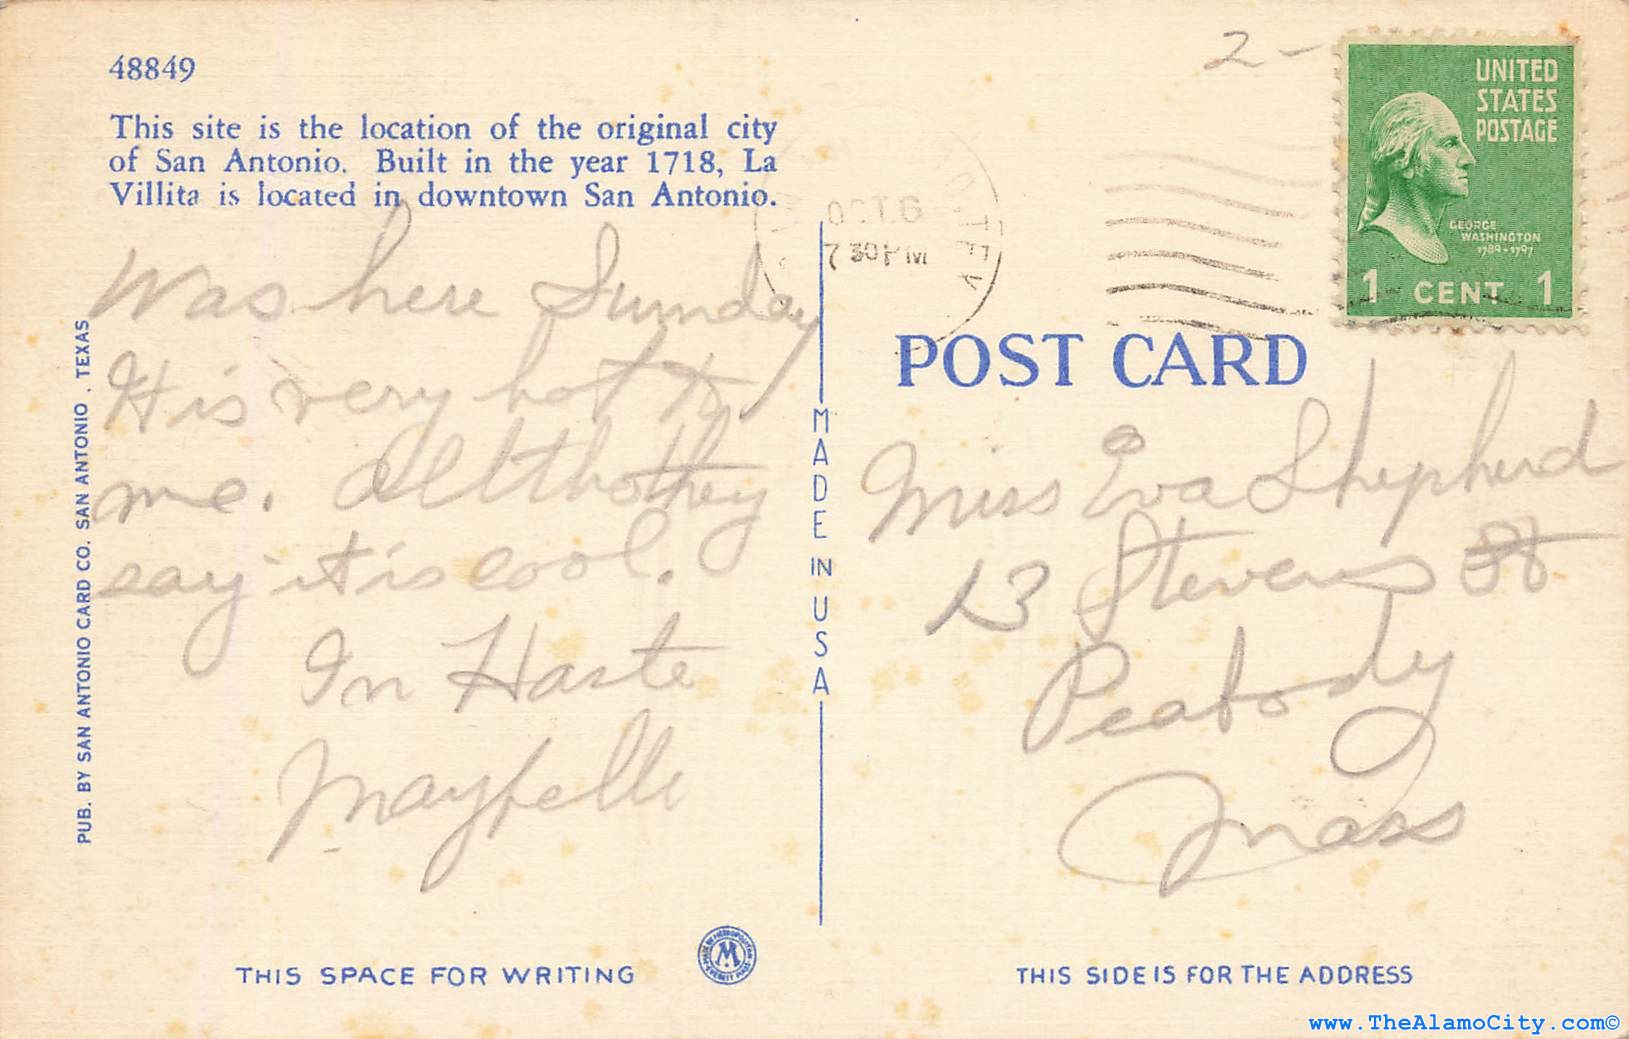 48849
This site is the location of the original city
of San Antonio. Built in the year 1718, La
Villita is located in downtown San Antonio.
Was here Sunday
It is very hot to
me. Altho they
say it is cool.
In Haste
Maybelle
PUB. BY SAN ANTONIO CARD CO. SAN ANTONIO, TEXAS
MADE IN USA
THIS SPACE FOR WRITING
M
2-
7 30 PM
TEX
UNITED
STATES
POSTAGE
GEORGE
WASHINGTON
1789-1797
1 CENT 1
POST CARD
Miss Eva Shepherd
13 Stevens St
Peabody
Mass
THIS SIDE IS FOR THE ADDRESS
www.TheAlamoCity.com©